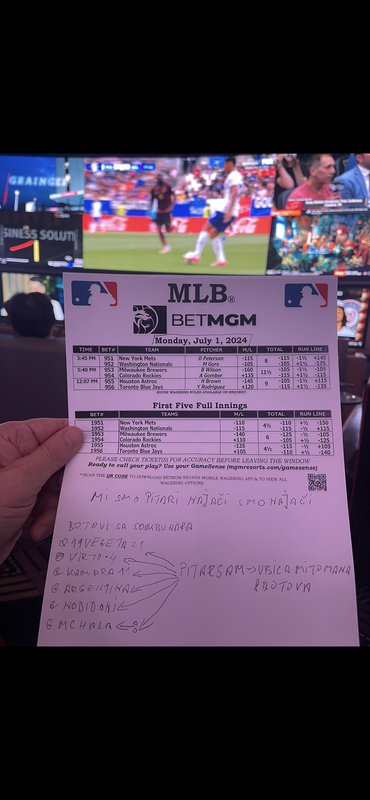 GRAINGER
SINESS SOLUTI
MLB®
BETMGM
Monday, July 1, 2024
TIME BET# TEAM PITCHER M/L TOTAL RUN LINE
3:45 PM 951 New York Mets D Peterson -115 8 -115 -1½ +145
952 Washington Nationals M Gore -105 -105 +1½ -175
5:40 PM 953 Milwaukee Brewers B Wilson -160 11½ -105 -1½ -105
954 Colorado Rockies A Gomber +135 -115 +1½ -115
12:07 PM 955 Houston Astros H Brown -145 9 -105 -1½ +115
956 Toronto Blue Jays Y Rodriguez +120 -115 +1½ -135
MORE WAGERING OPTIONS AVAILABLE ON REQUEST.
First Five Full Innings
BET# TEAMS M/L TOTAL RUN LINE
1951 New York Mets -110 4½ -110 +½ -150
1952 Washington Nationals -115 -110 -½ +115
1953 Milwaukee Brewers -140 6 -125 -½ -105
1954 Colorado Rockies +110 -105 +½ -125
1955 Houston Astros -135 4½ -115 -½ +105
1956 Toronto Blue Jays +105 -115 +½ -140
PLEASE CHECK TICKET(S) FOR ACCURACY BEFORE LEAVING THE WINDOW
Ready to call your play? Use your GameSense (mgmresorts.com/gamesense)
**SCAN THE QR CODE TO DOWNLOAD BETMGM NEVADA MOBILE WAGERING APP & TO VIEW ALL
WAGERING OPTIONS.
MI SMO PITARI NAJAČI SMO NAJAČI
BOTOVI SA SOMBUHARA
11VEGETA21
VIRTO
KAMORA 11
ARGENTINA
NODIDOKI
MCHALA
PITARSAM → UBICA MITOMANA
I BOTOVA